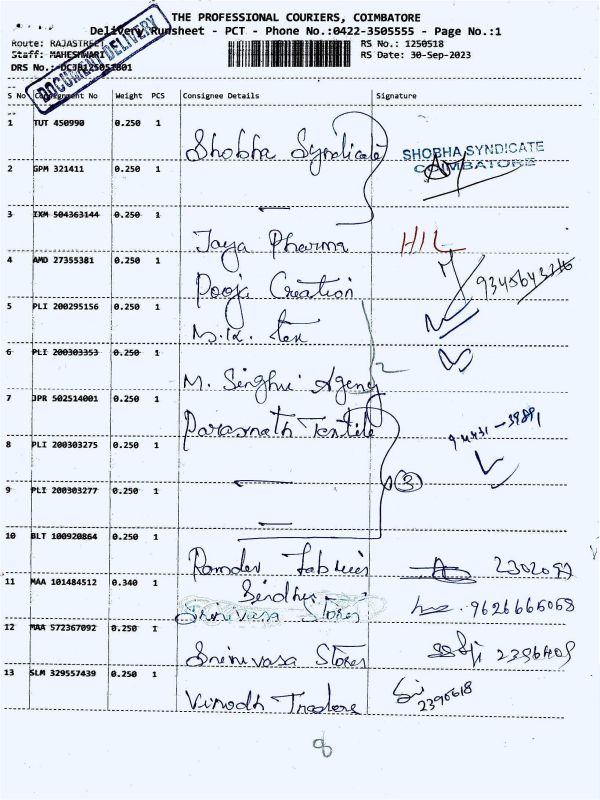 THE PROFESSIONAL COURIERS, COIMBATORE
Delivery Runsheet - PCT - Phone No.:0422-3505555 - Page No.:1
Route: RAJASTREET
RS No.: 1250518
Staff: MAHESHWARI
RS Date: 30-Sep-2023
DRS No.:
DOCUMENT DELIVERY
S No Consignment No Weight PCS Consignee Details Signature
1 TUT 450990 0.250 1 Shobha Syndicate
SHOBHA SYNDICATE
COIMBATORE
2 GPM 321411 0.250 1
3 IXM 504363144 0.250 1 Jaya Pharma HIL
4 AMD 27355381 0.250 1 Pooja Creation
5 PLI 200295156 0.250 1 M.K. Tex
6 PLI 200303353 0.250 1 M. Singhvi Agency
2
7 JPR 502514001 0.250 1 Parasnath Textile
8 PLI 200303275 0.250 1
9 PLI 200303277 0.250 1
3
10 BLT 100920864 0.250 1 Ramdev Fabrics
11 MAA 101484512 0.340 1 Sindhu
Srinivasa Stores
9626666068
12 MAA 572367092 0.250 1 Srinivasa Stores
13 SLM 329557439 0.250 1 Vinodh Traders
2390618
8